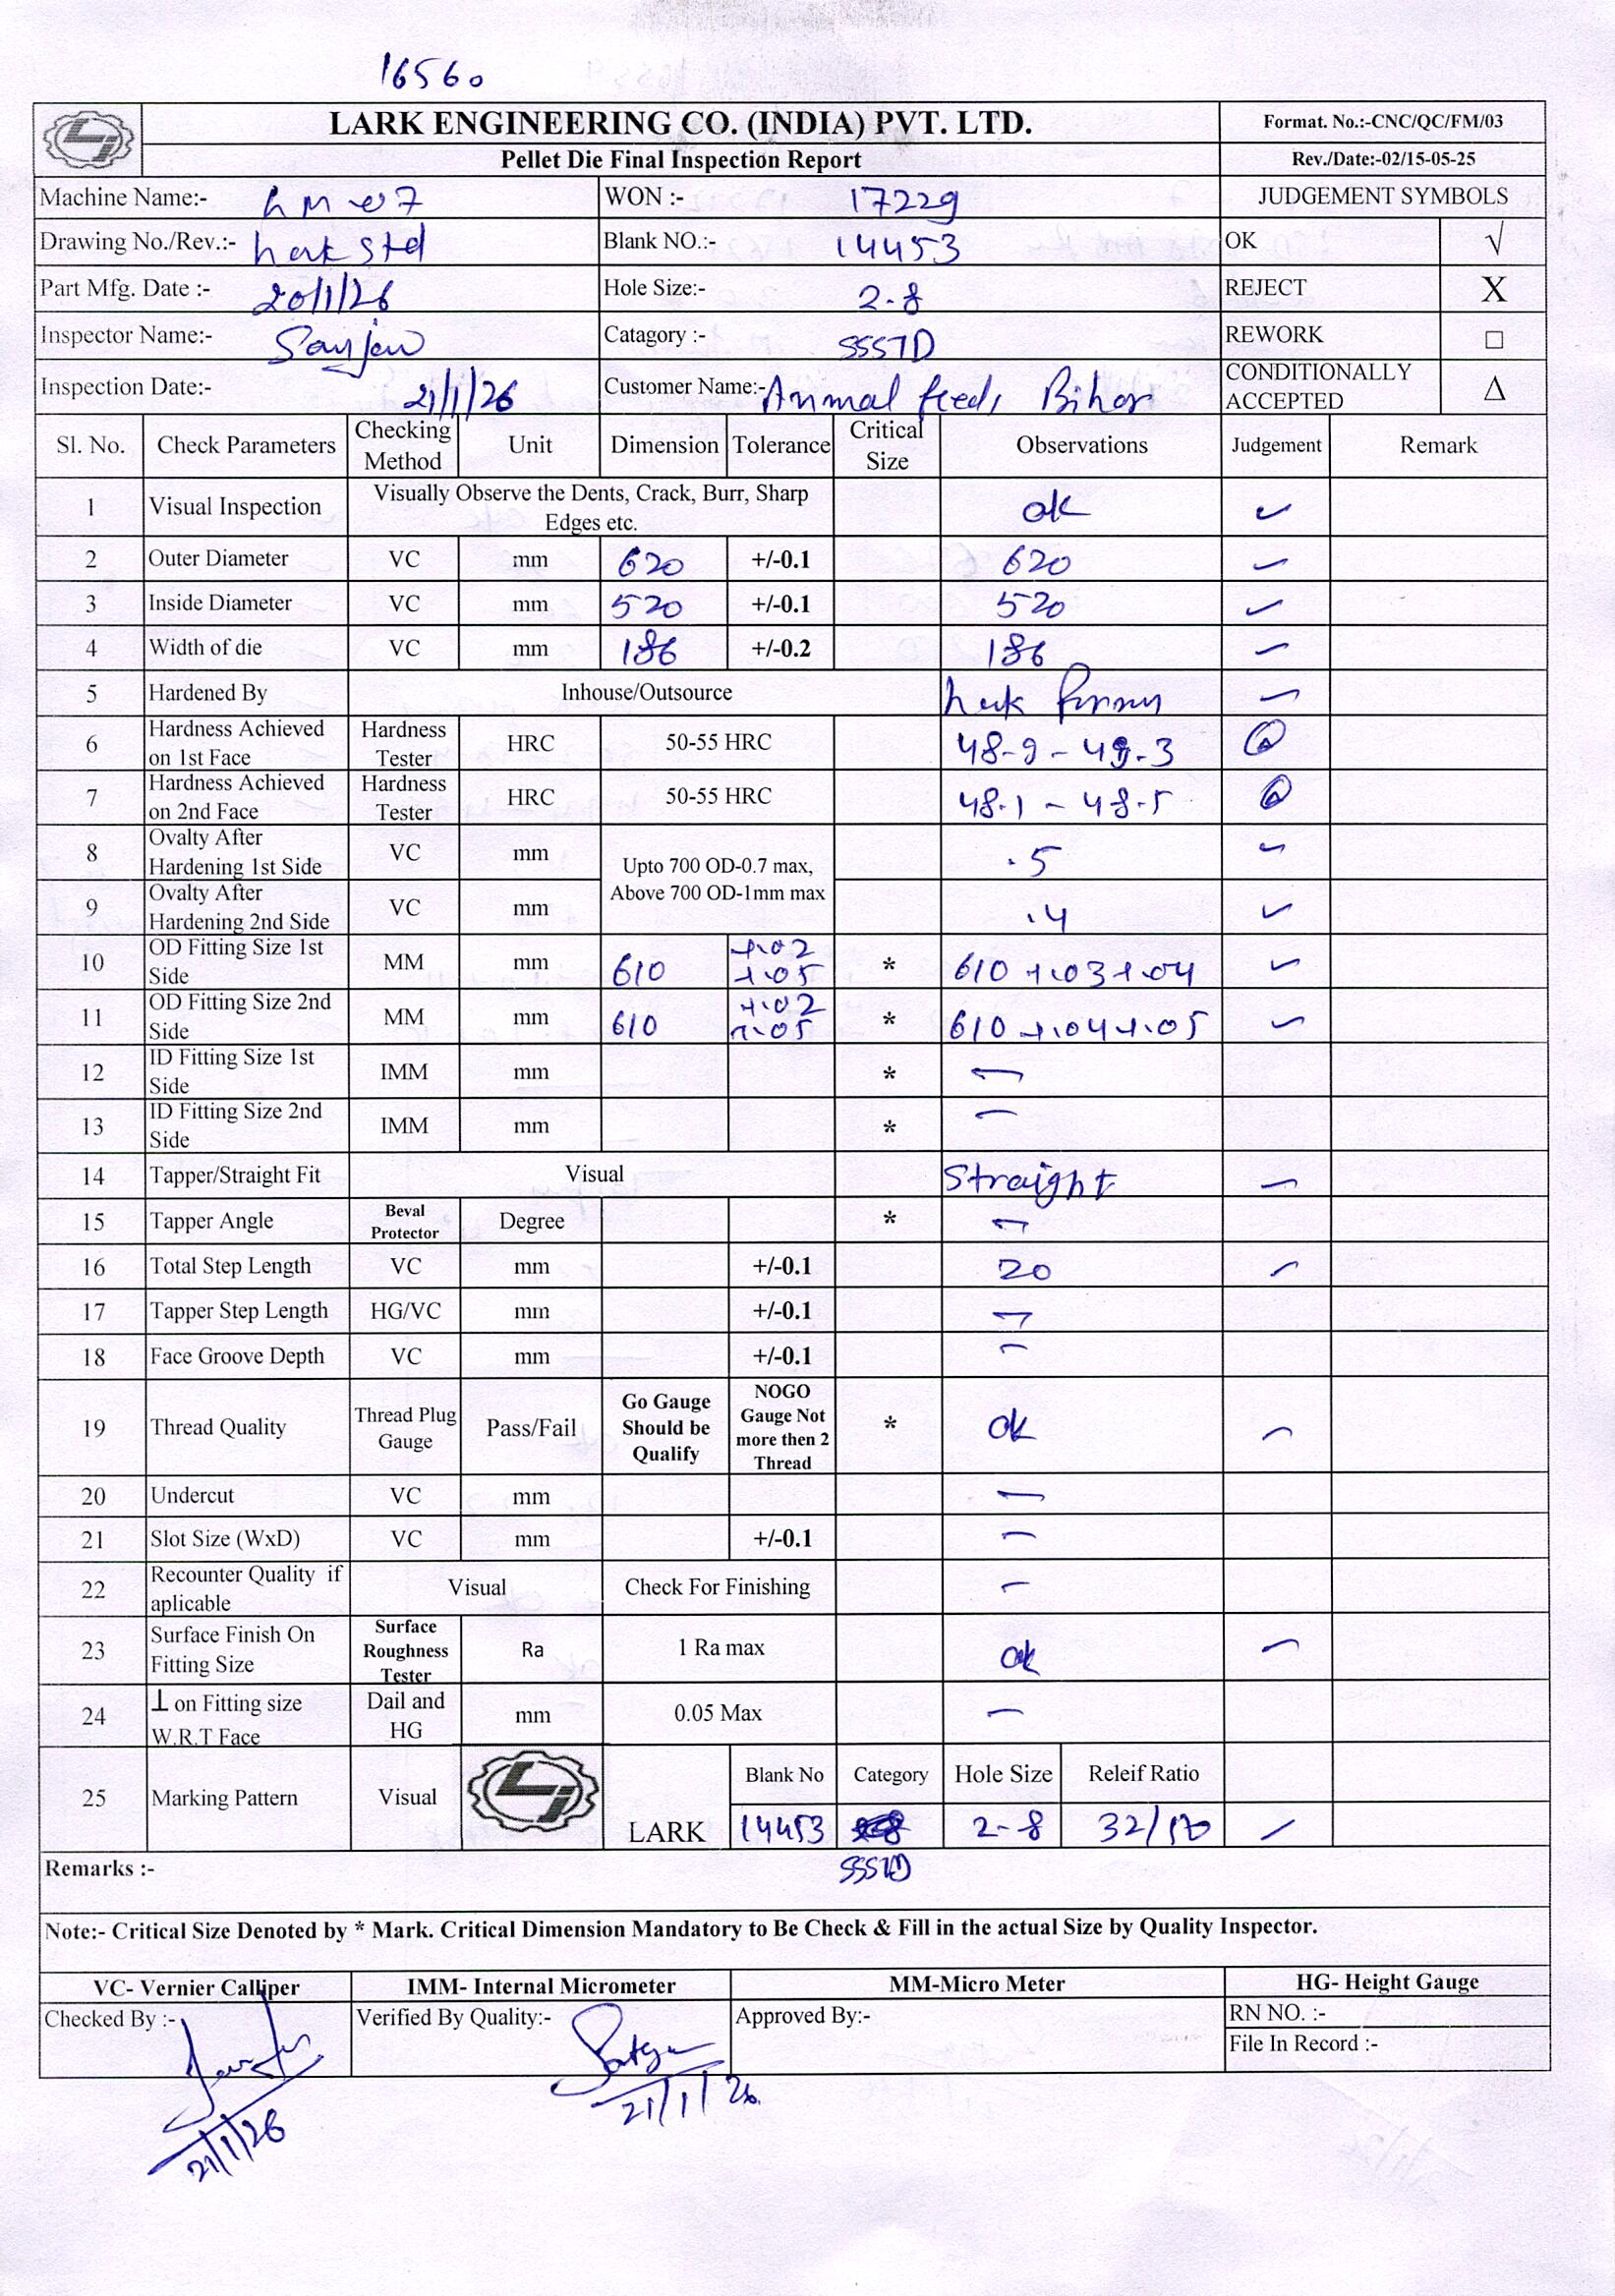 16560
LARK ENGINEERING CO. (INDIA) PVT. LTD.
Format. No.:-CNC/QC/FM/03
Pellet Die Final Inspection Report
Rev./Date:-02/15-05-25
Machine Name:-
WON :- 17229
JUDGEMENT SYMBOLS
Drawing No./Rev.:- Lark Std
Blank NO.:- 14453
OK √
Part Mfg. Date :- 20/1/26
Hole Size:- 2.8
REJECT X
Inspector Name:- Sanjeev
Catagory :- SSSTD
REWORK □
Inspection Date:- 21/1/26
Customer Name:- Animal feeds Bihar
CONDITIONALLY ACCEPTED Δ
Sl. No. Check Parameters Checking Method Unit Dimension Tolerance Critical Size Observations Judgement Remark
1 Visual Inspection Visually Observe the Dents, Crack, Burr, Sharp Edges etc. ok ✓
2 Outer Diameter VC mm 620 +/-0.1 620 ✓
3 Inside Diameter VC mm 520 +/-0.1 520 ✓
4 Width of die VC mm 186 +/-0.2 186 ✓
5 Hardened By Inhouse/Outsource Lark ✓
6 Hardness Achieved on 1st Face Hardness Tester HRC 50-55 HRC 48.9 - 49.3
7 Hardness Achieved on 2nd Face Hardness Tester HRC 50-55 HRC 48.1 - 48.5
8 Ovalty After Hardening 1st Side VC mm Upto 700 OD-0.7 max, Above 700 OD-1mm max .5 ✓
9 Ovalty After Hardening 2nd Side VC mm .4 ✓
10 OD Fitting Size 1st Side MM mm 610 +.02 +.05 * 610 +.03 +.04 ✓
11 OD Fitting Size 2nd Side MM mm 610 +.02 +.05 * 610 +.04 +.05 ✓
12 ID Fitting Size 1st Side IMM mm * —
13 ID Fitting Size 2nd Side IMM mm * —
14 Tapper/Straight Fit Visual Straight ✓
15 Tapper Angle Beval Protector Degree * —
16 Total Step Length VC mm +/-0.1 20 ✓
17 Tapper Step Length HG/VC mm +/-0.1 —
18 Face Groove Depth VC mm +/-0.1 —
19 Thread Quality Thread Plug Gauge Pass/Fail Go Gauge Should be Qualify NOGO Gauge Not more then 2 Thread * ok ✓
20 Undercut VC mm —
21 Slot Size (WxD) VC mm +/-0.1 —
22 Recounter Quality if aplicable Visual Check For Finishing —
23 Surface Finish On Fitting Size Surface Roughness Tester Ra 1 Ra max ok ✓
24 ⊥ on Fitting size W.R.T Face Dail and HG mm 0.05 Max —
25 Marking Pattern Visual LARK Blank No Category Hole Size Releif Ratio
14453 SSSTD 2-8 ✓
Remarks :-
Note:- Critical Size Denoted by * Mark. Critical Dimension Mandatory to Be Check & Fill in the actual Size by Quality Inspector.
VC- Vernier Calliper IMM- Internal Micrometer MM-Micro Meter HG- Height Gauge
Checked By :- 21/1/26
Verified By Quality:- 21/1/26
Approved By:-
RN NO. :-
File In Record :-